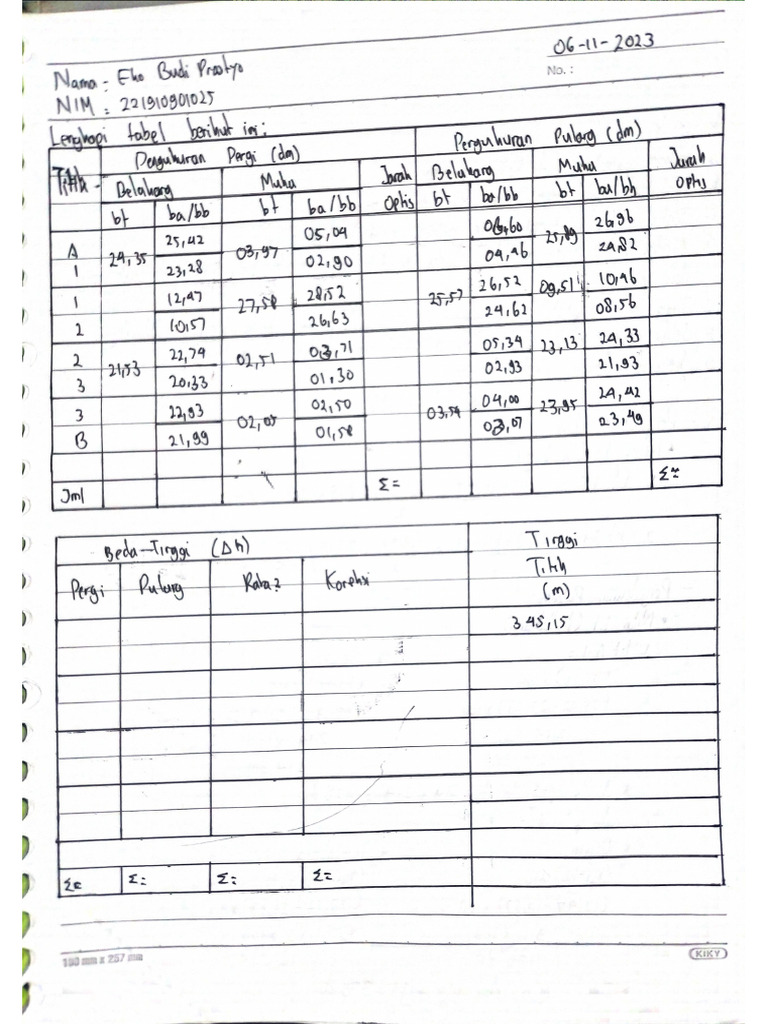 06-11-2023
No. :
Nama : Eko Budi Prastyo
NIM : 221910901025
Lengkapi tabel berikut ini :
Titik Pengukuran Pergi (dm) Pengukuran Pulang (dm)
Belakang Muka Jarak Optis Belakang Muka Jarak Optis
bt ba/bb bt ba/bb bt ba/bb bt ba/bb
A 24,35 25,42 03,97 05,04 06,60 25,89 26,96
1 23,28 02,90 04,46 24,82
1 12,47 27,58 28,52 25,57 26,52 09,51 10,46
2 10,57 26,63 24,62 08,56
2 21,53 22,74 02,51 03,71 05,34 23,13 24,33
3 20,33 01,30 02,93 21,93
3 22,93 02,05 02,50 03,54 04,00 23,95 24,42
B 21,99 01,58 03,07 23,49
Jml Σ= Σ=
Beda-Tinggi (Δh) Tinggi Titik (m)
Pergi Pulang Rata² Koreksi
345,15
Σ= Σ= Σ= Σ=
180 mm x 257 mm KIKY